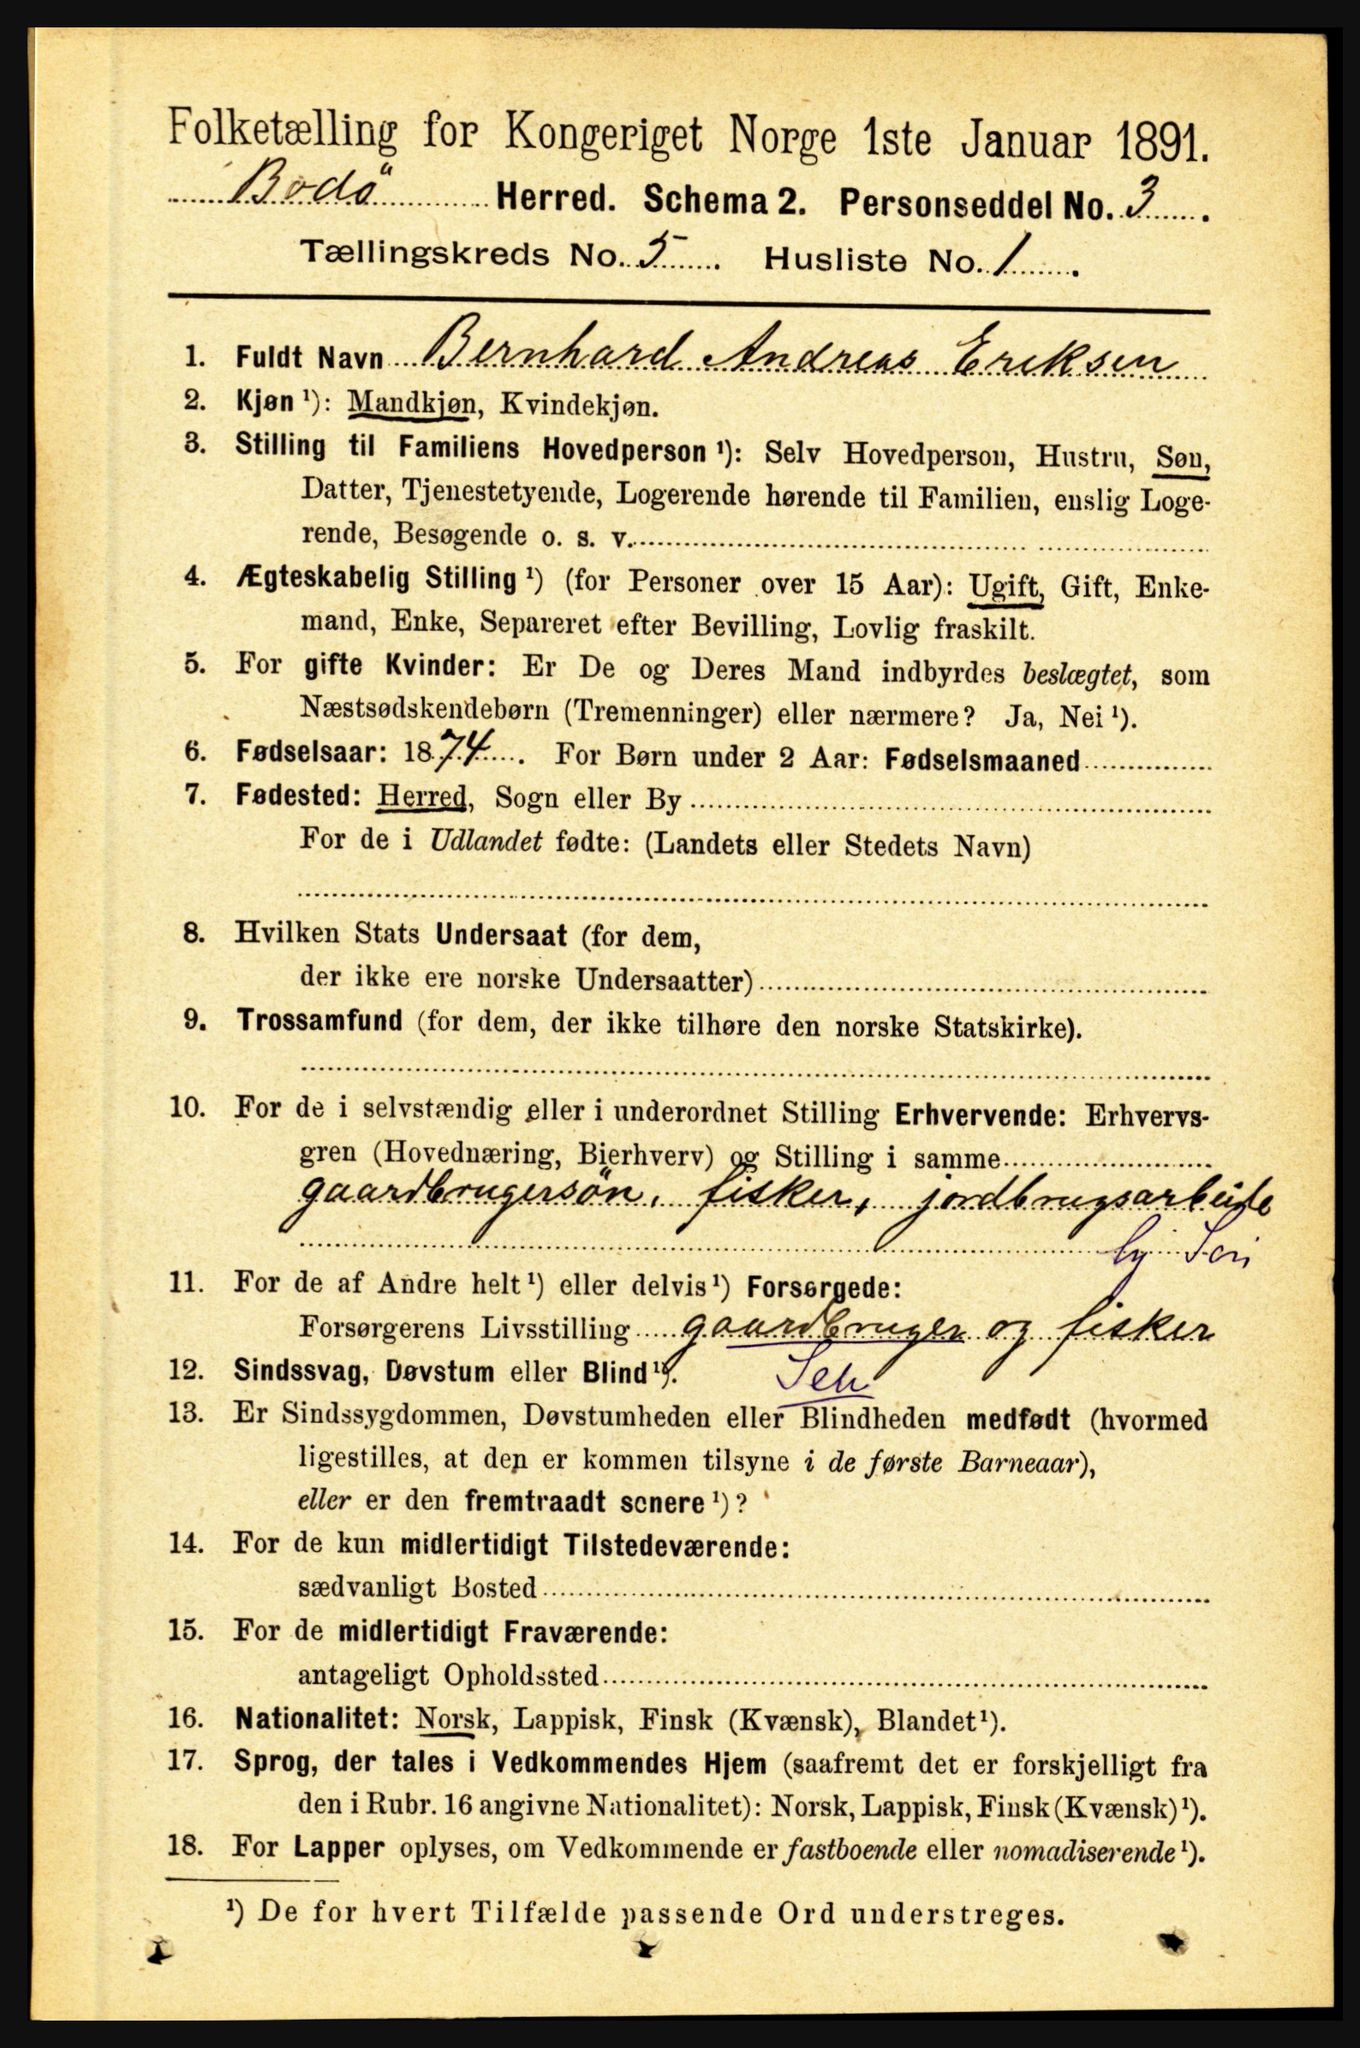 Folketælling for Kongeriget Norge 1ste Januar 1891.
Bodö Herred. Schema 2. Personseddel No. 3.
Tællingskreds No. 5. Husliste No. 1.
1. Fuldt Navn Bernhard Andreas Eriksen
2. Kjøn ¹): Mandkjøn, Kvindekjøn.
3. Stilling til Familiens Hovedperson ¹): Selv Hovedperson, Hustru, Søn,
Datter, Tjenestetyende, Logerende hørende til Familien, enslig Loge-
rende, Besøgende o. s. v.
4. Ægteskabelig Stilling ¹) (for Personer over 15 Aar): Ugift, Gift, Enke-
mand, Enke, Separeret efter Bevilling, Lovlig fraskilt.
5. For gifte Kvinder: Er De og Deres Mand indbyrdes beslægtet, som
Næstsødskendebørn (Tremenninger) eller nærmere? Ja, Nei ¹).
6. Fødselsaar: 1874. For Børn under 2 Aar: Fødselsmaaned
7. Fødested: Herred, Sogn eller By
For de i Udlandet fødte: (Landets eller Stedets Navn)
8. Hvilken Stats Undersaat (for dem,
der ikke ere norske Undersaatter)
9. Trossamfund (for dem, der ikke tilhøre den norske Statskirke).
10. For de i selvstændig eller i underordnet Stilling Erhvervende: Erhvervs-
gren (Hovednæring, Bierhverv) og Stilling i samme
gaardbrugersön, fisker, jordbrugsarbeide
11. For de af Andre helt ¹) eller delvis ¹) Forsørgede:
Forsørgerens Livsstilling gaardbruger og fisker
12. Sindssvag, Døvstum eller Blind ¹).
13. Er Sindssygdommen, Døvstumheden eller Blindheden medfødt (hvormed
ligestilles, at den er kommen tilsyne i de første Barneaar),
eller er den fremtraadt senere ¹)?
14. For de kun midlertidigt Tilstedeværende:
sædvanligt Bosted
15. For de midlertidigt Fraværende:
antageligt Opholdssted
16. Nationalitet: Norsk, Lappisk, Finsk (Kvænsk), Blandet ¹).
17. Sprog, der tales i Vedkommendes Hjem (saafremt det er forskjelligt fra
den i Rubr. 16 angivne Nationalitet): Norsk, Lappisk, Finsk (Kvænsk) ¹).
18. For Lapper oplyses, om Vedkommende er fastboende eller nomadiserende ¹).
¹) De for hvert Tilfælde passende Ord understreges.